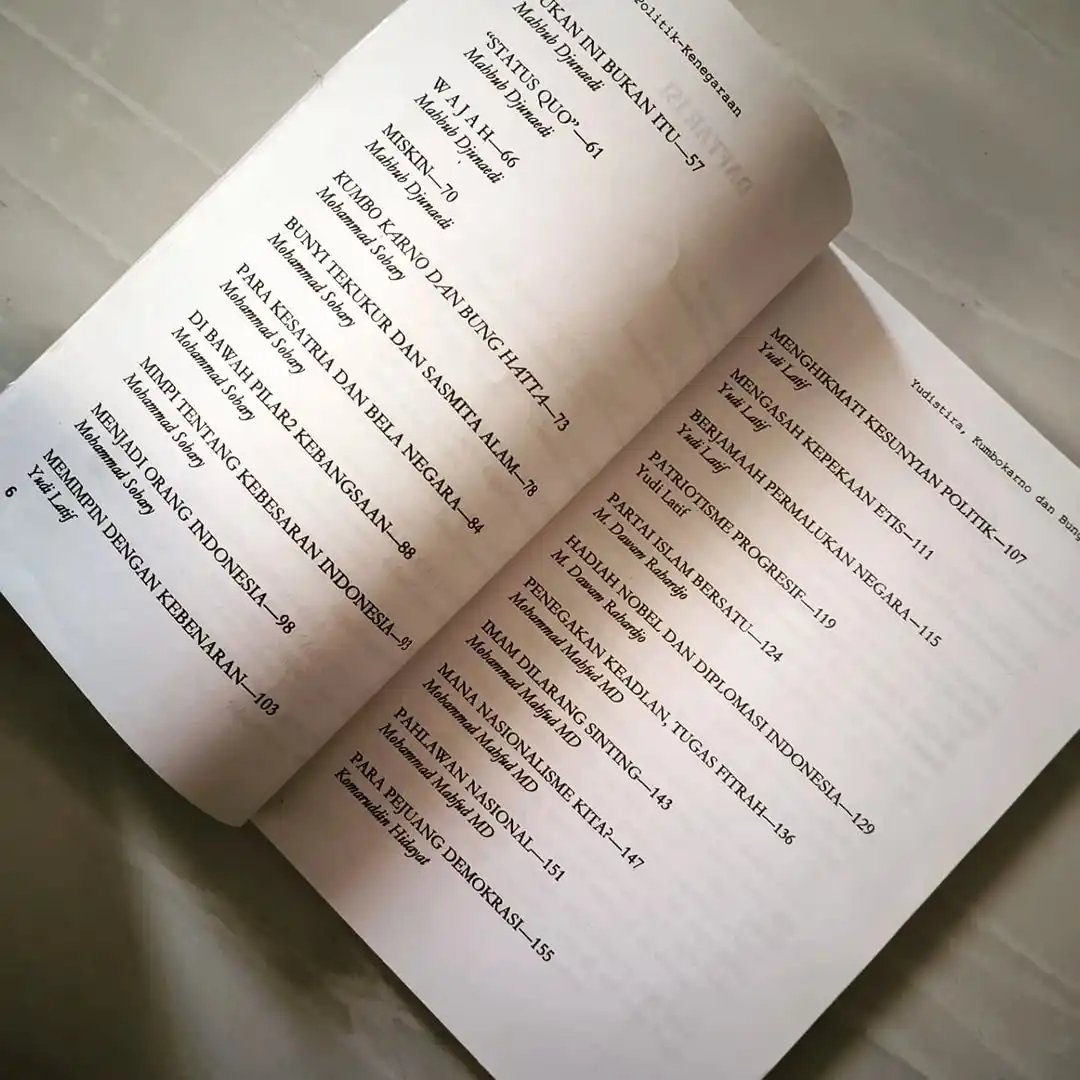 Politik-Kenegaraan
UKAN INI BUKAN ITU—57
Mahbub Djunaedi
"STATUS QUO"—61
Mahbub Djunaedi
W A J A H—66
Mahbub Djunaedi
MISKIN—70
Mahbub Djunaedi
KUMBO KARNO DAN BUNG HATTA—73
Mohammad Sobary
BUNYI TEKUKUR DAN SASMITA ALAM—78
Mohammad Sobary
PARA KESATRIA DAN BELA NEGARA—84
Mohammad Sobary
DI BAWAH PILAR2 KEBANGSAAN—88
Mohammad Sobary
MIMPI TENTANG KEBESARAN INDONESIA—93
Mohammad Sobary
MENJADI ORANG INDONESIA—98
Mohammad Sobary
MEMIMPIN DENGAN KEBENARAN—103
Yudi Latif
6
Yudistira, Kumbokarno dan Bung
MENGHIKMATI KESUNYIAN POLITIK—107
Yudi Latif
MENGASAH KEPEKAAN ETIS—111
Yudi Latif
BERJAMAAH PERMALUKAN NEGARA—115
Yudi Latif
PATRIOTISME PROGRESIF—119
Yudi Latif
PARTAI ISLAM BERSATU—124
M. Dawam Rahardjo
HADIAH NOBEL DAN DIPLOMASI INDONESIA—129
M. Dawam Rahardjo
PENEGAKAN KEADLAN, TUGAS FITRAH—136
Mohammad Mahfud MD
IMAM DILARANG SINTING—143
Mohammad Mahfud MD
MANA NASIONALISME KITA?—147
Mohammad Mahfud MD
PAHLAWAN NASIONAL—151
Mohammad Mahfud MD
PARA PEJUANG DEMOKRASI—155
Komaruddin Hidayat